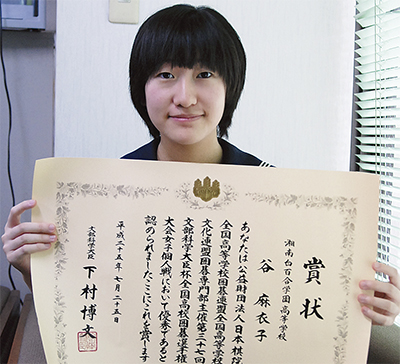 賞状
湘南白百合学園高等学校
谷 麻衣子
あなたは公益財団法人日本棋院
全国高等学校囲碁連盟全国高等学校
文化連盟囲碁専門部主催第三十七回
文部科学大臣杯全国高校囲碁選手権
大会女子個人戦において優秀であると
認められましたここにこれを賞します
平成二十五年七月二十五日
文部科学大臣
下村博文